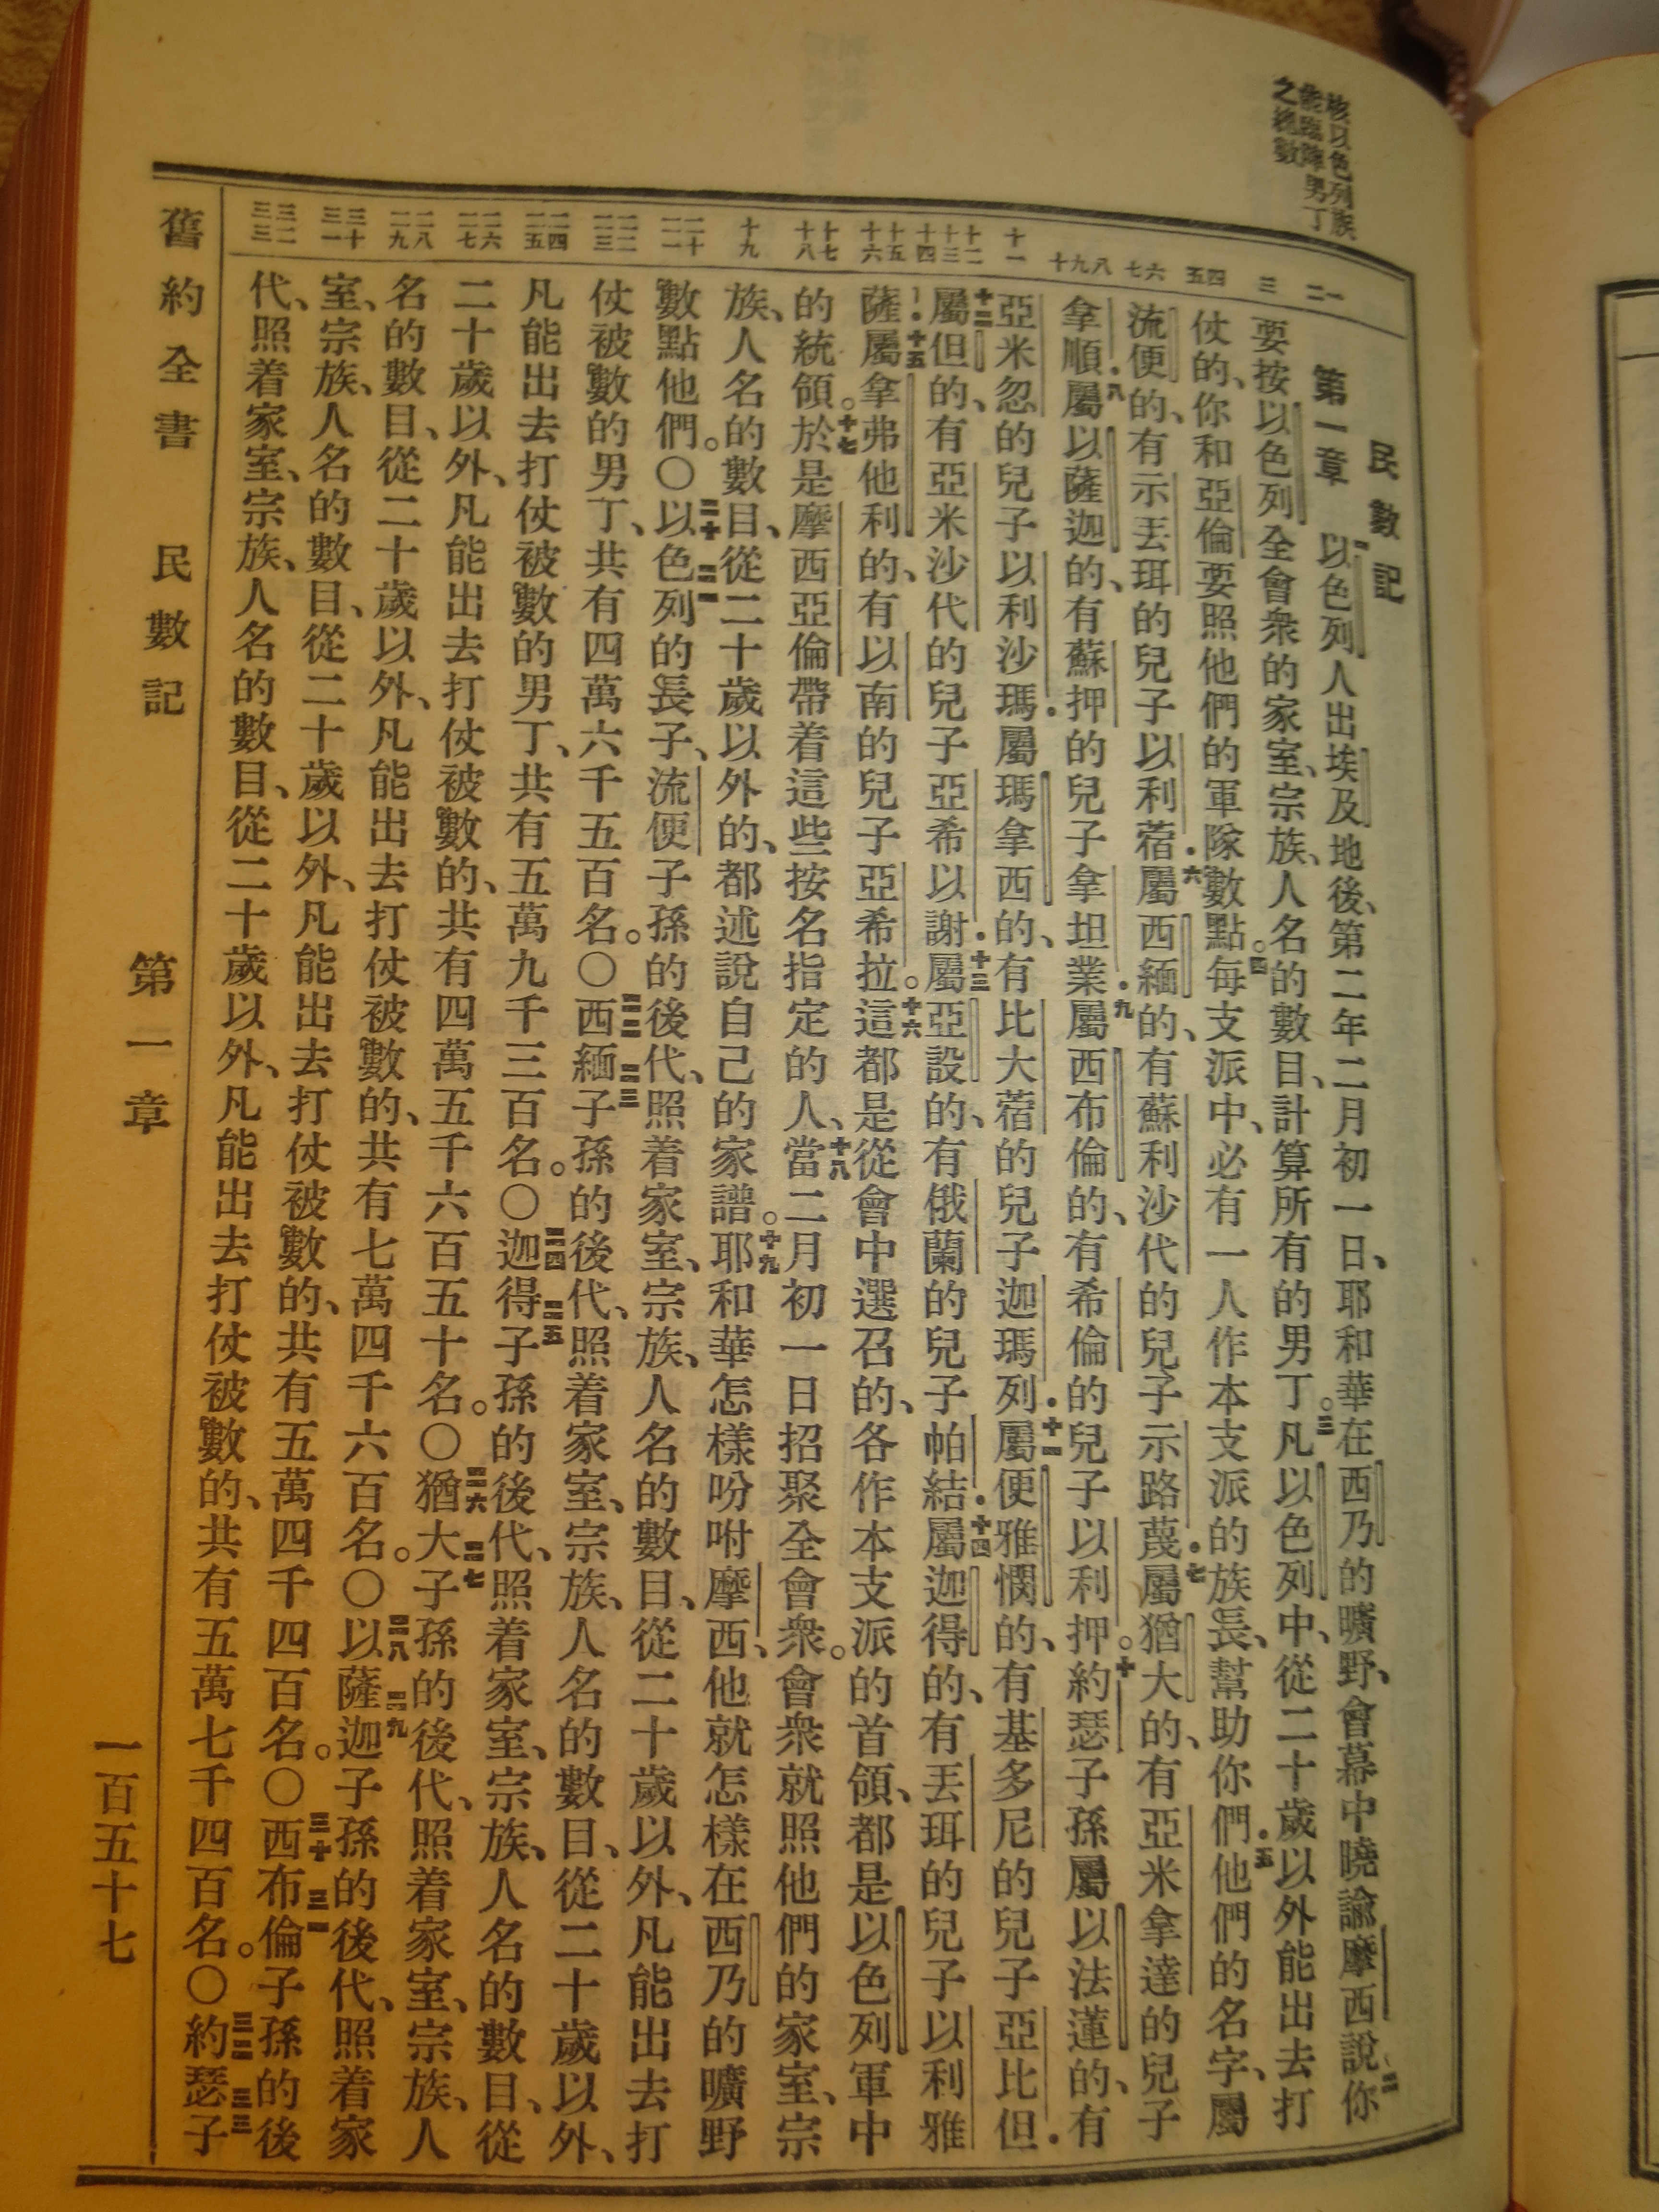 核以色列族
能臨陣男丁
之總數
一二 三 四五 六七 八九十 十一 十二十三十四 十五十六 十七十八 十九 二十二一 二二二三 二四二五 二六二七 二八二九 三十三一 三二三三
民數記
第一章 一以色列人出埃及地後、第二年二月初一日、耶和華在西乃的曠野、會幕中曉諭摩西說、二你
要按以色列全會衆的家室、宗族、人名的數目、計算所有的男丁。三凡以色列中、從二十歲以外能出去打
仗的、你和亞倫要照他們的軍隊數點。四每支派中、必有一人作本支派的族長、幫助你們．五他們的名字、屬
流便的、有示丟珥的兒子以利蓿．六屬西緬的、有蘇利沙代的兒子示路蔑．七屬猶大的、有亞米拿達的兒子
拿順．八屬以薩迦的、有蘇押的兒子拿坦業．九屬西布倫的、有希倫的兒子以利押。十約瑟子孫屬以法蓮的、有
亞米忽的兒子以利沙瑪．屬瑪拿西的、有比大蓿的兒子迦瑪列．十一屬便雅憫的、有基多尼的兒子亞比但．
十二屬但的、有亞米沙代的兒子亞希以謝．十三屬亞設的、有俄蘭的兒子帕結．十四屬迦得的、有丟珥的兒子以利雅
薩．十五屬拿弗他利的、有以南的兒子亞希拉。十六這都是從會中選召的、各作本支派的首領、都是以色列軍中
的統領。十七於是摩西亞倫帶着這些按名指定的人、十八當二月初一日招聚全會衆。會衆就照他們的家室、宗
族、人名的數目、從二十歲以外的、都述說自己的家譜。十九耶和華怎樣吩咐摩西、他就怎樣在西乃的曠野
數點他們。〇二十以色二一列的長子、流便子孫的後代、照着家室、宗族、人名的數目、從二十歲以外、凡能出去打
仗被數的男丁、共有四萬六千五百名。〇二二西緬二三子孫的後代、照着家室、宗族、人名的數目、從二十歲以外、
凡能出去打仗被數的男丁、共有五萬九千三百名。〇二四迦得二五子孫的後代、照着家室、宗族、人名的數目、從
二十歲以外、凡能出去打仗被數的、共有四萬五千六百五十名。〇二六猶大二七子孫的後代、照着家室、宗族、人
名的數目、從二十歲以外、凡能出去打仗被數的、共有七萬四千六百名。〇二八以薩二九迦子孫的後代、照着家
室、宗族、人名的數目、從二十歲以外、凡能出去打仗被數的、共有五萬四千四百名。〇三十西布三一倫子孫的後
代、照着家室、宗族、人名的數目、從二十歲以外、凡能出去打仗被數的、共有五萬七千四百名。〇三二約瑟三三子
舊約全書 民數記 第一章 一百五十七